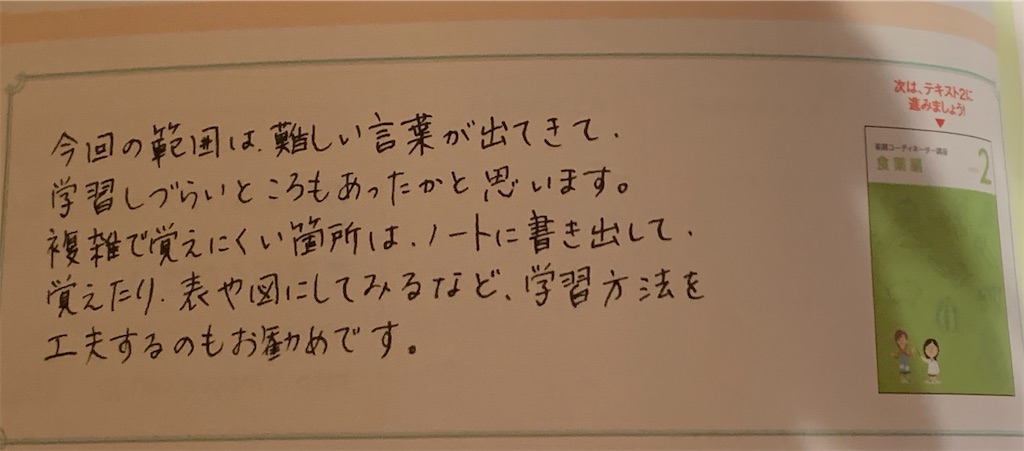 今回の範囲は、難しい言葉が出てきて、
学習しづらいところもあったかと思います。
複雑で覚えにくい箇所は、ノートに書き出して、
覚えたり、表や図にしてみるなど、学習方法を
工夫するのもお勧めです。
次は、テキスト2に
進みましょう!
コーディネーター講座
食薬編
2